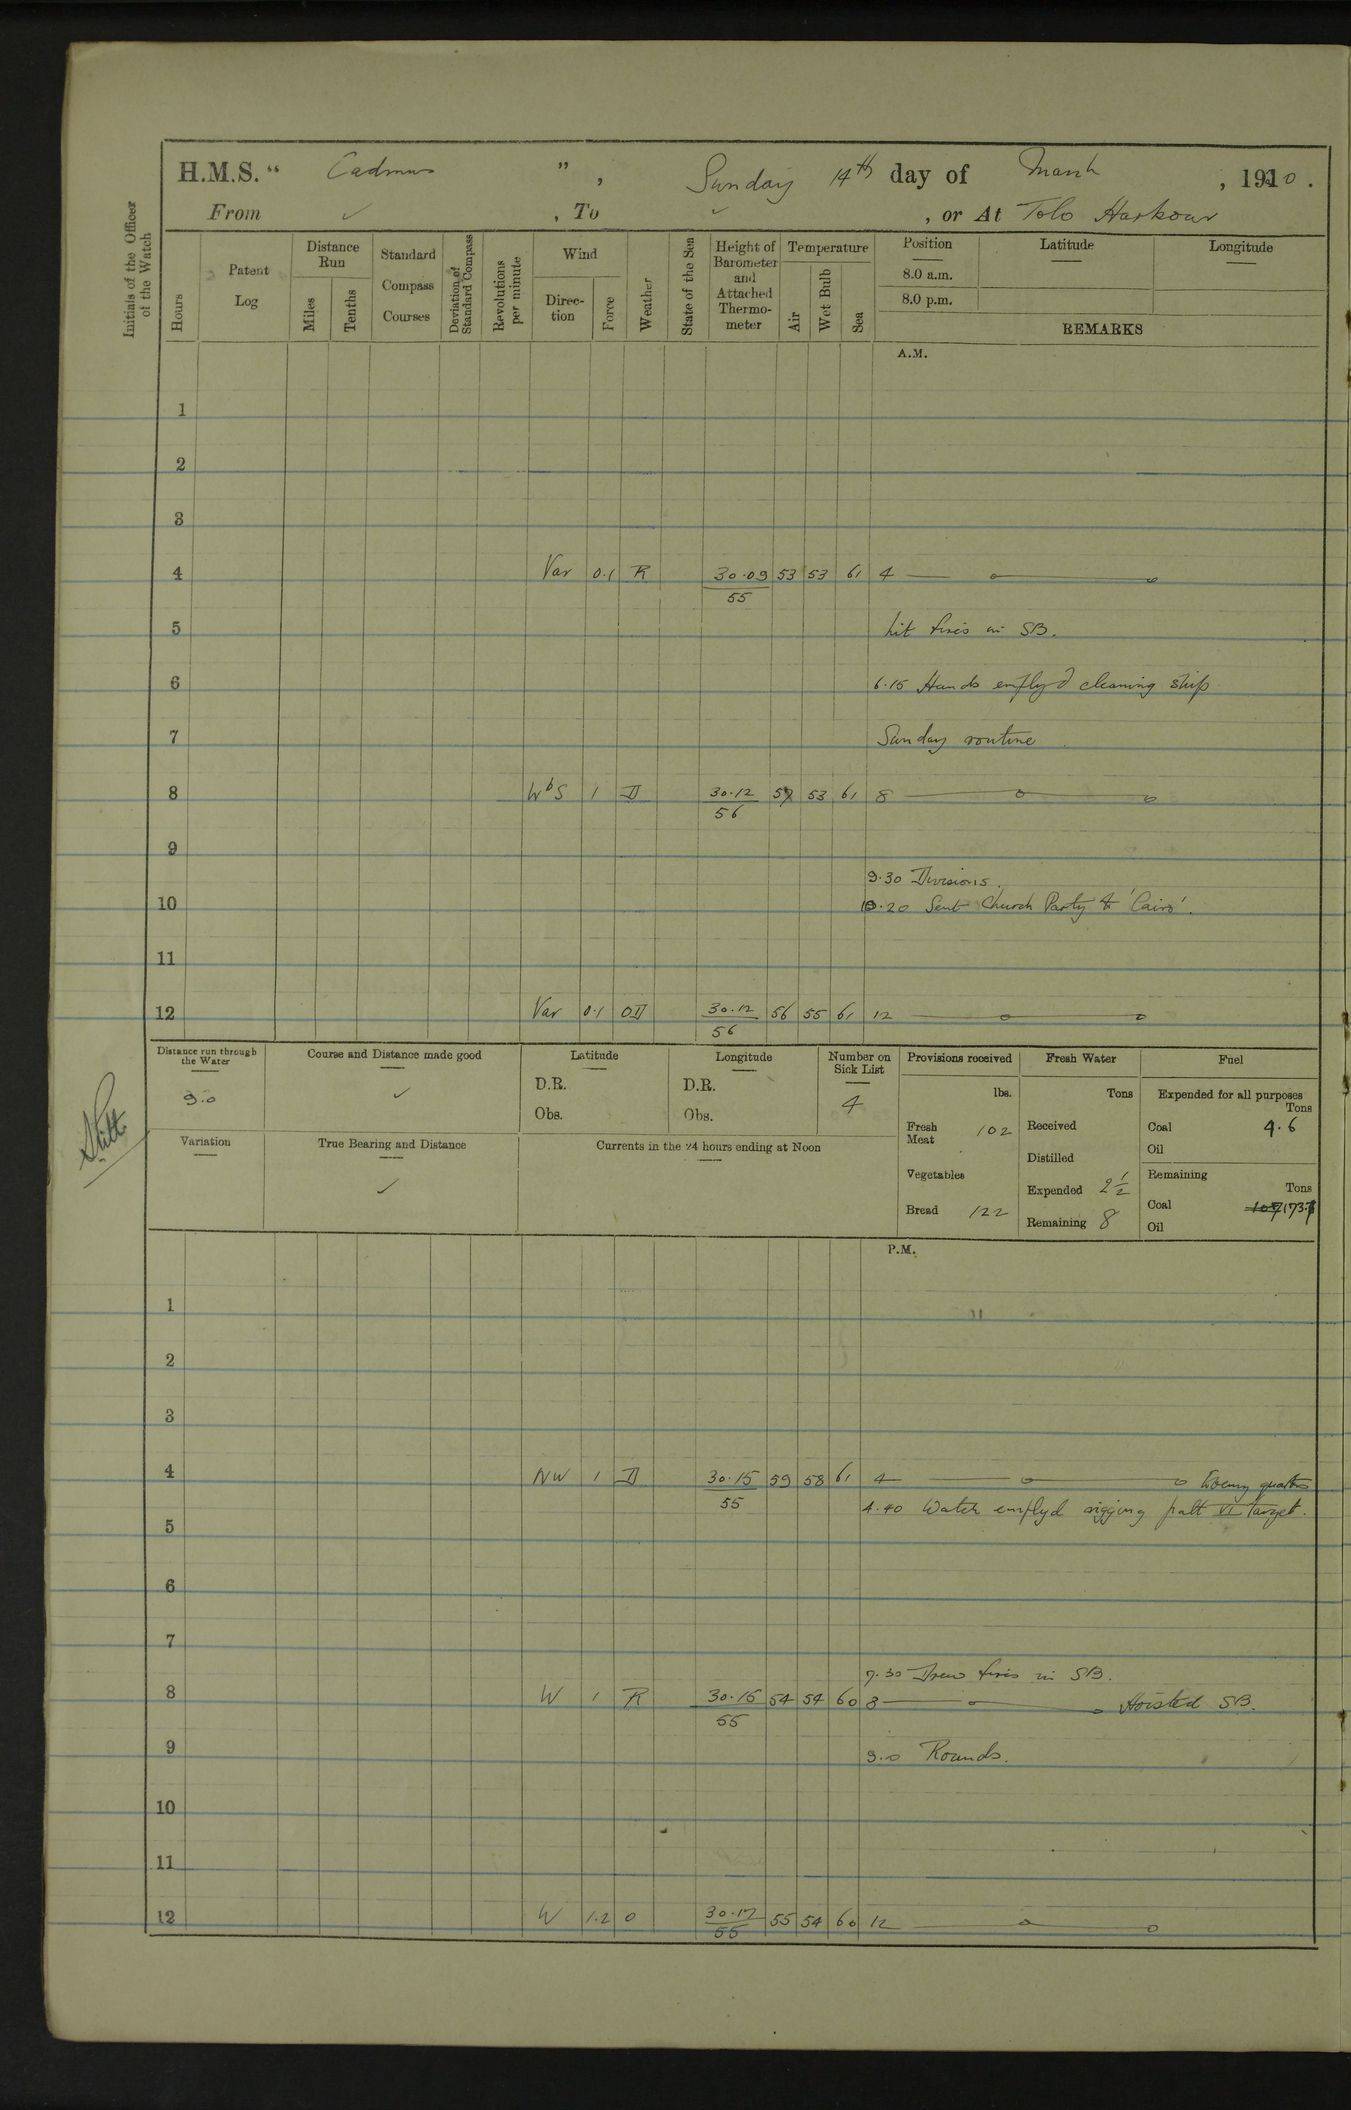 H.M.S. “ Cadmus ” , Sunday 14th day of March , 1910 .
From ✓ , To ✓ , or At Tolo Harbour
Initials of the Officer of the Watch
Hours
Patent Log
Distance Run
Miles
Tenths
Standard Compass Courses
Deviation of Standard Compass
Revolutions per minute
Wind
Direc-tion
Force
Weather
State of the Sea
Height of Barometer and Attached Thermo-meter
Temperature
Air
Wet Bulb
Sea
Position
Latitude
Longitude
8.0 a.m.
8.0 p.m.
REMARKS
A.M.
1
2
3
4 Var 0.1 R 30.09 53 53 61 4
55
5 Lit fires in SB.
6 6.15 Hands emplyd cleaning ship
7 Sunday routine
8 WbS 1 D 30.12 53 61 8
56
9
9.30 Divisions.
10 10.20 Sent Church Party to 'Cairo'.
11
12 Var 0.1 OD 30.12 56 55 61 12
56
Distance run through the Water
9.0
Course and Distance made good
✓
Latitude
D.R.
Obs.
Longitude
D.R.
Obs.
Number on Sick List
4
Provisions received
lbs.
Fresh Meat 102
Vegetables
Bread 122
Fresh Water
Tons
Received
Distilled
Expended 2 1/2
Remaining 8
Fuel
Expended for all purposes
Tons
Coal 4.6
Oil
Remaining
Tons
Coal 173.7
Oil
Variation
True Bearing and Distance
✓
Currents in the 24 hours ending at Noon
P.M.
1
2
3
4 NW 1 D 30.15 59 58 61 4 Evening quarters
55
4.40 Watch emplyd rigging patt VI Target.
5
6
7
7.30 Drew fires in SB.
8 W 1 R 30.15 54 54 60 8 Hoisted SB.
55
9 9.0 Rounds.
10
11
12 W 1.2 O 30.17 55 54 60 12
55